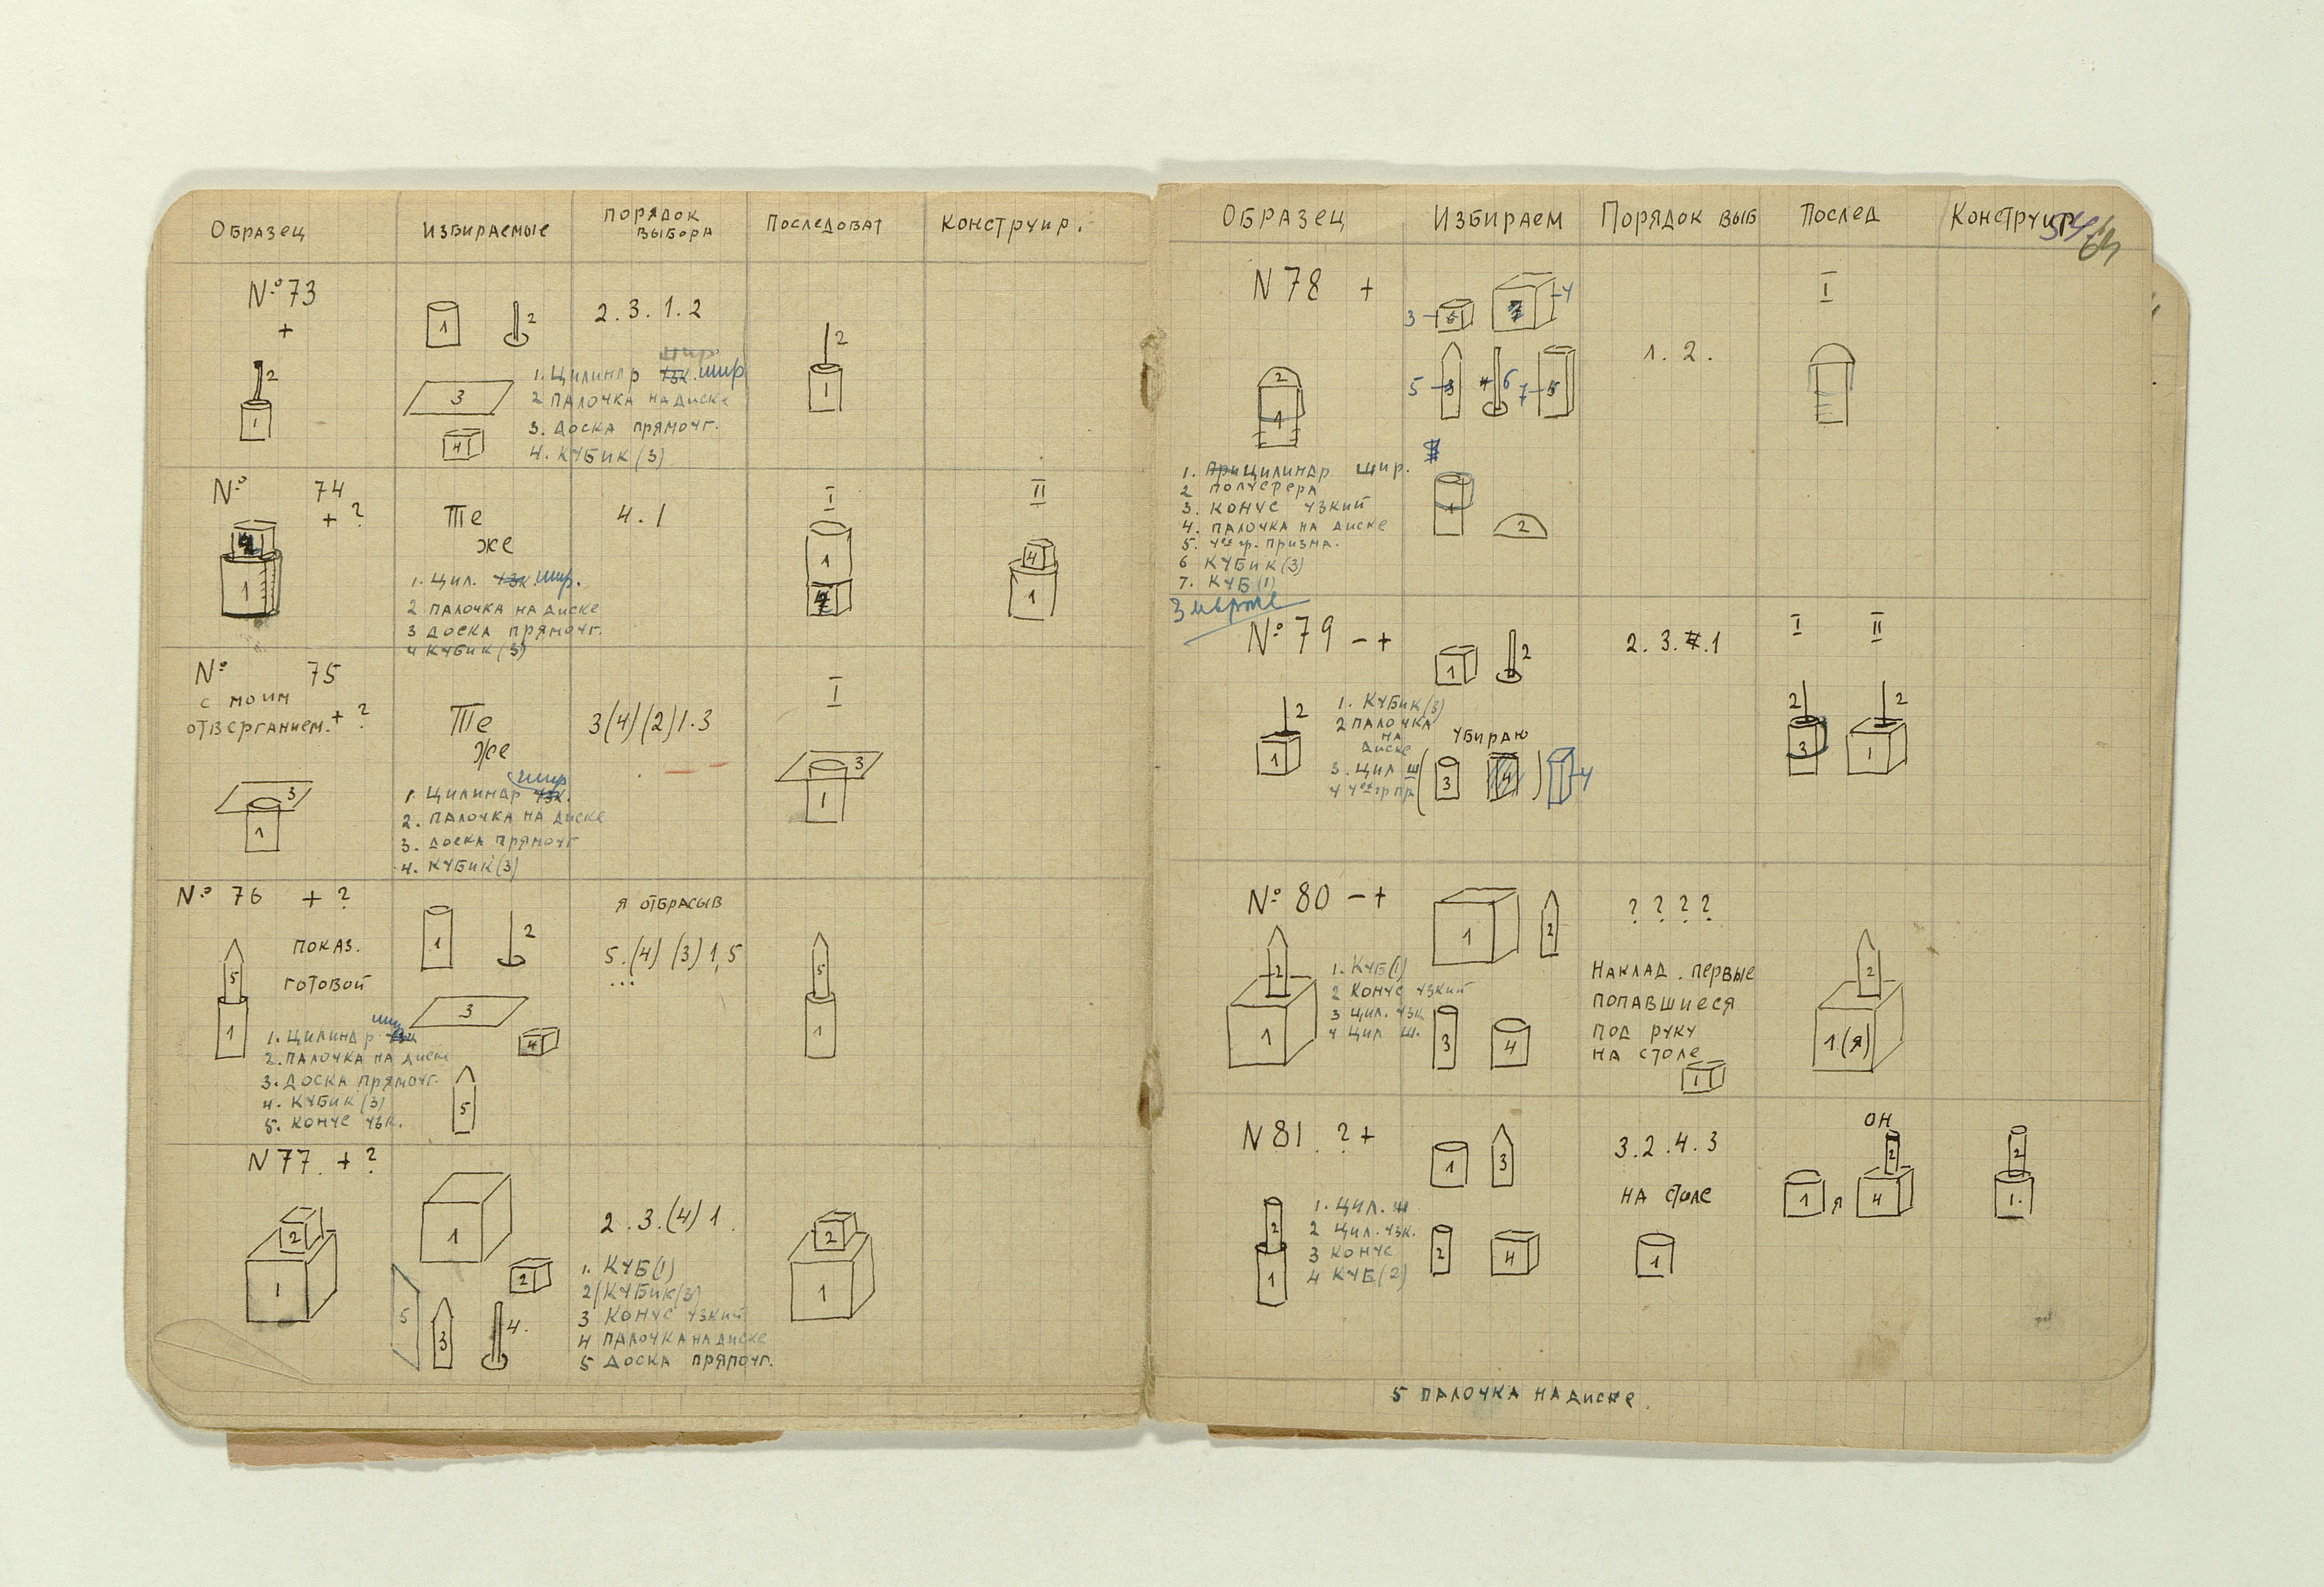 Образец
Избираемые
Порядок
выбора
Последоват
Конструир.
№ 73
+
2
1
1
2
3
4
2. 3. 1. 2
шир.
1. Цилиндр узк. шир
2 палочка на диске
3. Доска прямоуг.
4. Кубик (3)
2
1
№ 74
+ ?
1
Те
же
1. Цил. узк. шир.
2 палочка на диске
3 доска прямоуг.
4 кубик (3)
4. 1
I
1
4
II
4
1
№ 75
с моим
отверганием. + ?
3
1
Те
же
шир
1. Цилиндр узк.
2. палочка на диске
3. доска прямоуг
4. кубик (3)
3 (4) (2) 1. 3
I
3
1
№ 76 + ?
показ.
готовой
5
1
шир
1. Цилиндр узк
2. палочка на диске
3. Доска прямоуг.
4. Кубик (3)
5. конус узк.
1
2
3
4
5
я отбрасыв
5. (4) (3) 1, 5
...
5
1
N 77. + ?
2
1
1
2
5
3
4.
2. 3. (4) 1.
1. Куб (1)
2 (Кубик (3)
3 Конус узкий
4 палочка на диске
5 Доска прямоуг.
2
1
Образец
Избираем
Порядок выб
Послед
Конструир
64
N 78 +
2
1
1. При Цилиндр шир.
2 полусфера
3. конус узкий
4. палочка на диске
5. 4ех гр. призма.
6 кубик (3)
7. Куб (1)
3
4
5
6
7
1
2
1. 2.
I
№ 79 - +
2
1
1. Кубик (3)
2 палочка
на
диске
3. Цил ш
4 4ех гр пр
1
2
убираю
( 3 4 ) 4
2. 3. 4. 1
I
II
2
3
2
1
№ 80 - +
2
1
1. Куб (1)
2 Конус узкий
3 цил. узк
4 цил ш.
1
2
3
4
? ? ? ?
Наклад. первые
попавшиеся
под руку
на столе
1
2
1 (я)
N 81 ? +
2
1
1. Цил. ш
2 Цил. узк.
3 Конус
4 Куб (2)
1
3
2
4
3. 2. 4. 3
на столе
1
он
1 я
2
4
2
1.
5 палочка на диске.